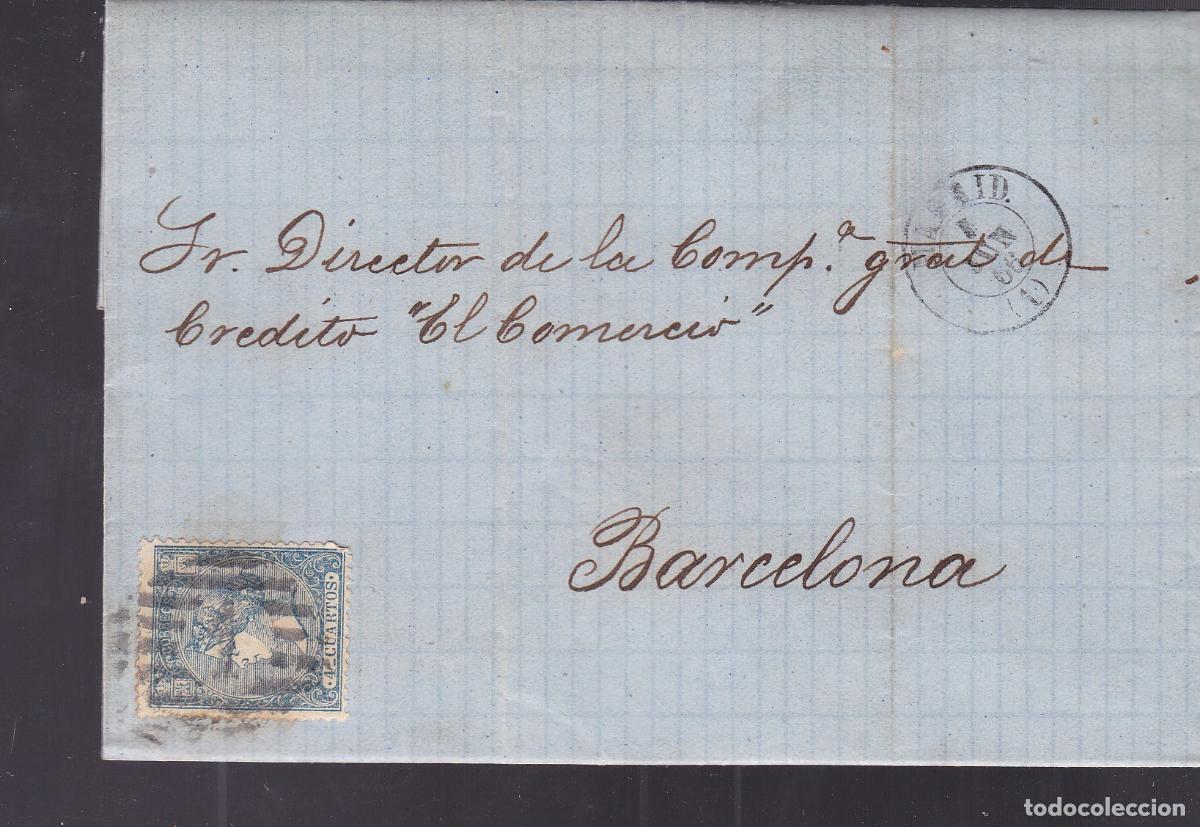 Sr. Director de la Comp.ª gral de
Credito "El Comercio"
Barcelona
MADRID.
1
JUN
66
(1)
CORREOS
4 CUARTOS
todocoleccion